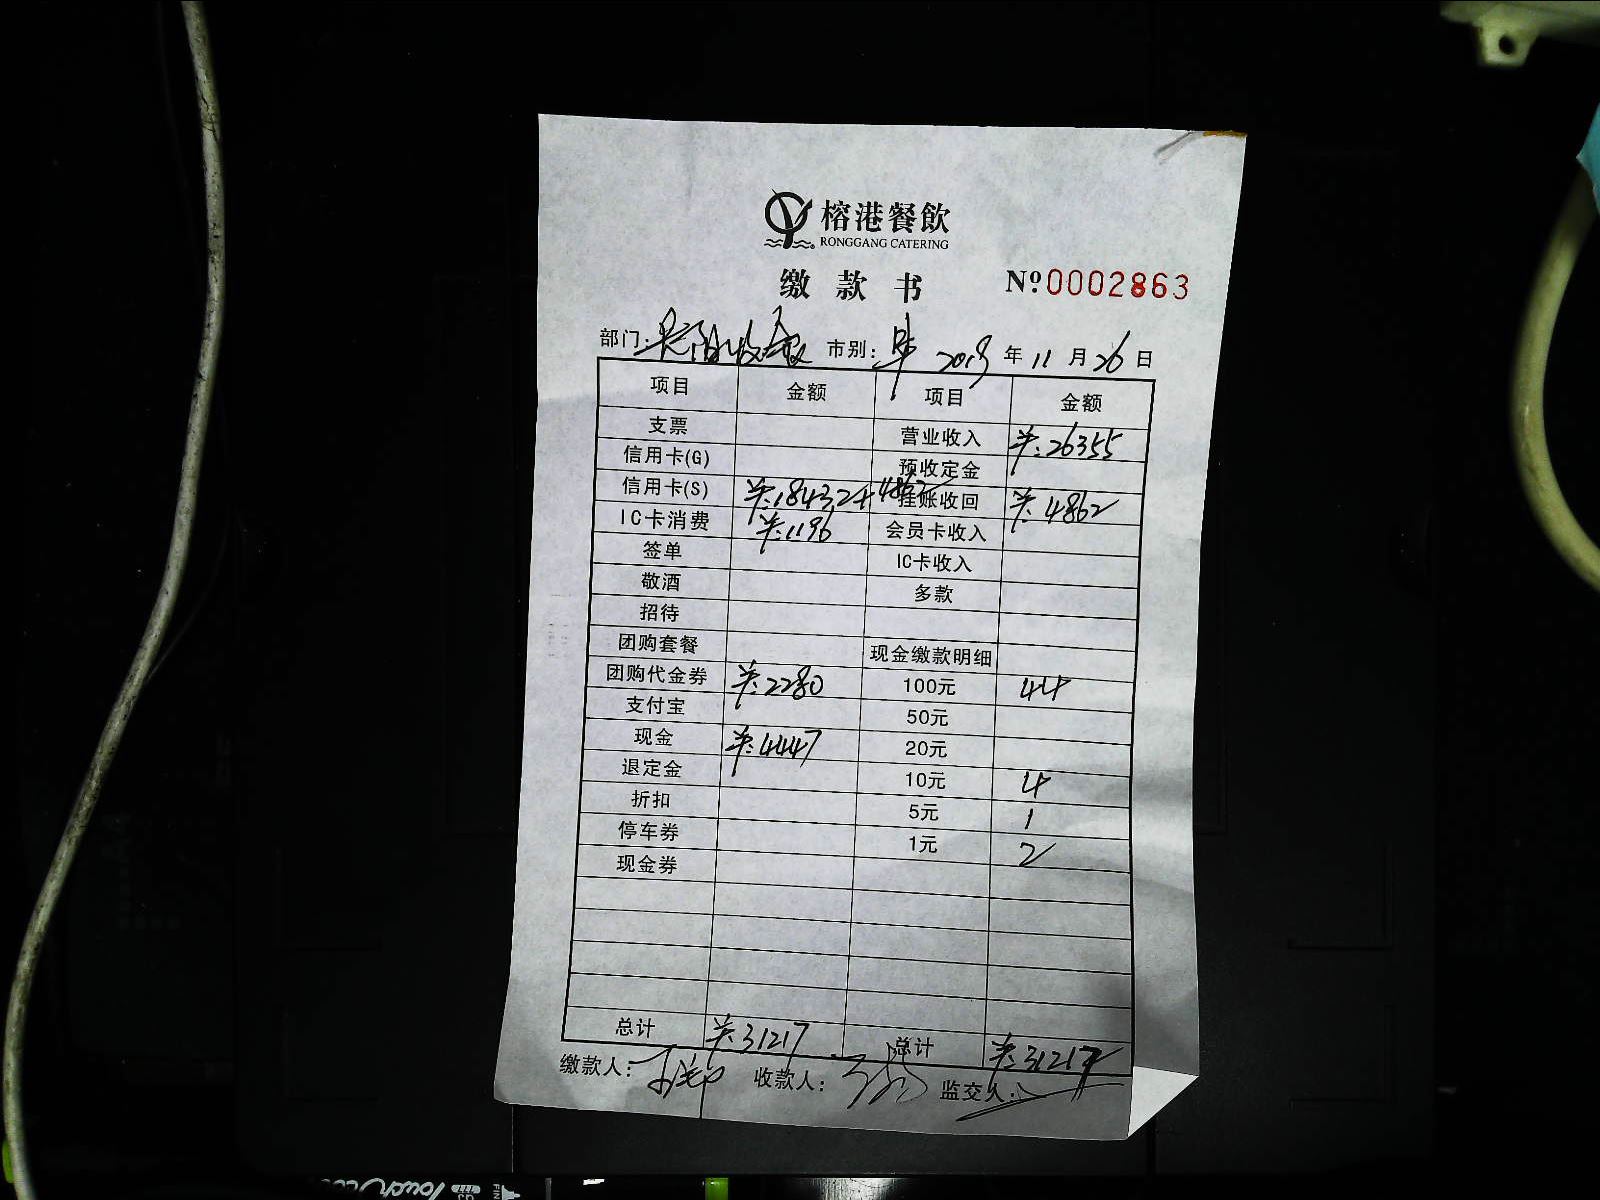 榕港餐飲
RONGGANG CATERING
缴款书 Nº 0002863
部门: 市别: 2019年11月26日
项目 金额 项目 金额
支票 营业收入 羊:26355
信用卡(G) 预收定金
信用卡(S) 羊:18432+4862 挂账收回 羊:4862
IC卡消费 羊:1196 会员卡收入
签单 IC卡收入
敬酒 多款
招待
团购套餐 现金缴款明细
团购代金券 羊:2280 100元 44
支付宝 50元
现金 羊:4447 20元
退定金 10元 4
折扣 5元 1
停车券 1元 2
现金券
总计 羊:31217 总计 羊:31217
缴款人: 收款人: 监交人:
Touch